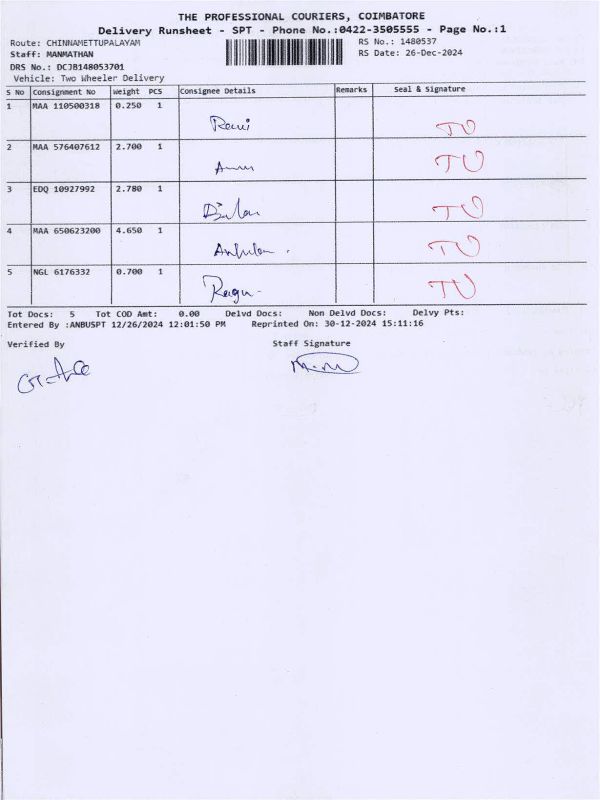 THE PROFESSIONAL COURIERS, COIMBATORE
Delivery Runsheet - SPT - Phone No.:0422-3505555 - Page No.:1
Route: CHINNAMETTUPALAYAM RS No.: 1480537
Staff: MANMATHAN RS Date: 26-Dec-2024
DRS No.: DCJB148053701
Vehicle: Two Wheeler Delivery
S No Consignment No Weight PCS Consignee Details Remarks Seal & Signature
1 MAA 110500318 0.250 1
Ravi TU
2 MAA 576407612 2.700 1
TU
3 EDQ 10927992 2.780 1
TU
4 MAA 650623200 4.650 1
TU
5 NGL 6176332 0.700 1
Ragu TU
Tot Docs: 5 Tot COD Amt: 0.00 Delvd Docs: Non Delvd Docs: Delvy Pts:
Entered By :ANBUSPT 12/26/2024 12:01:50 PM Reprinted On: 30-12-2024 15:11:16
Verified By Staff Signature